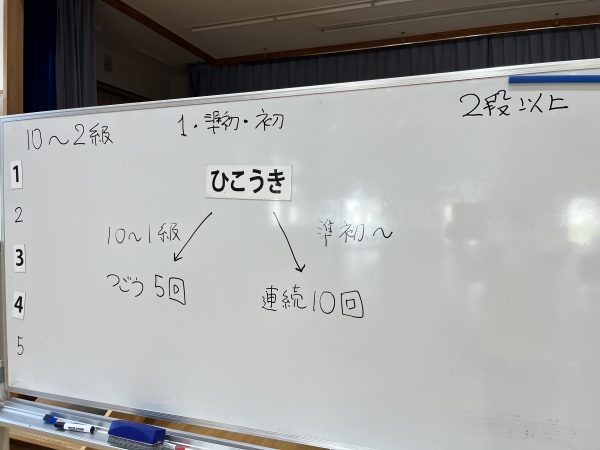 10〜2級 1・準初・初 2段以上
1
2
3
4
5
ひこうき
10〜1級 準初〜
つごう 5回 連続10回